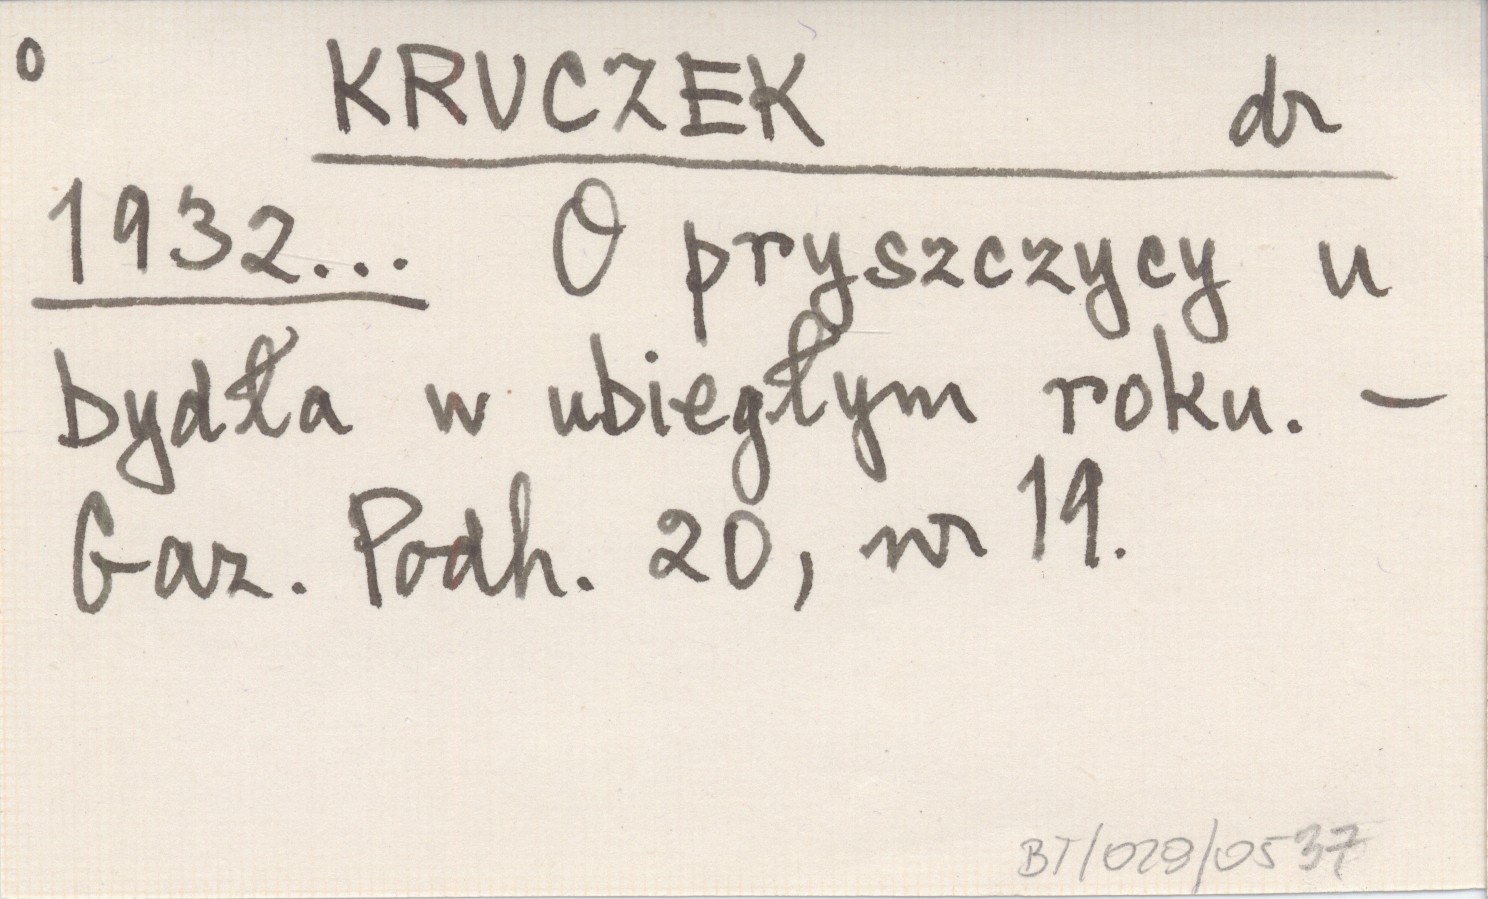 o KRUCZEK dr
1932... O pryszczycy u
bydła w ubiegłym roku. –
Gaz. Podh. 20, nr 19.
BT/028/0537